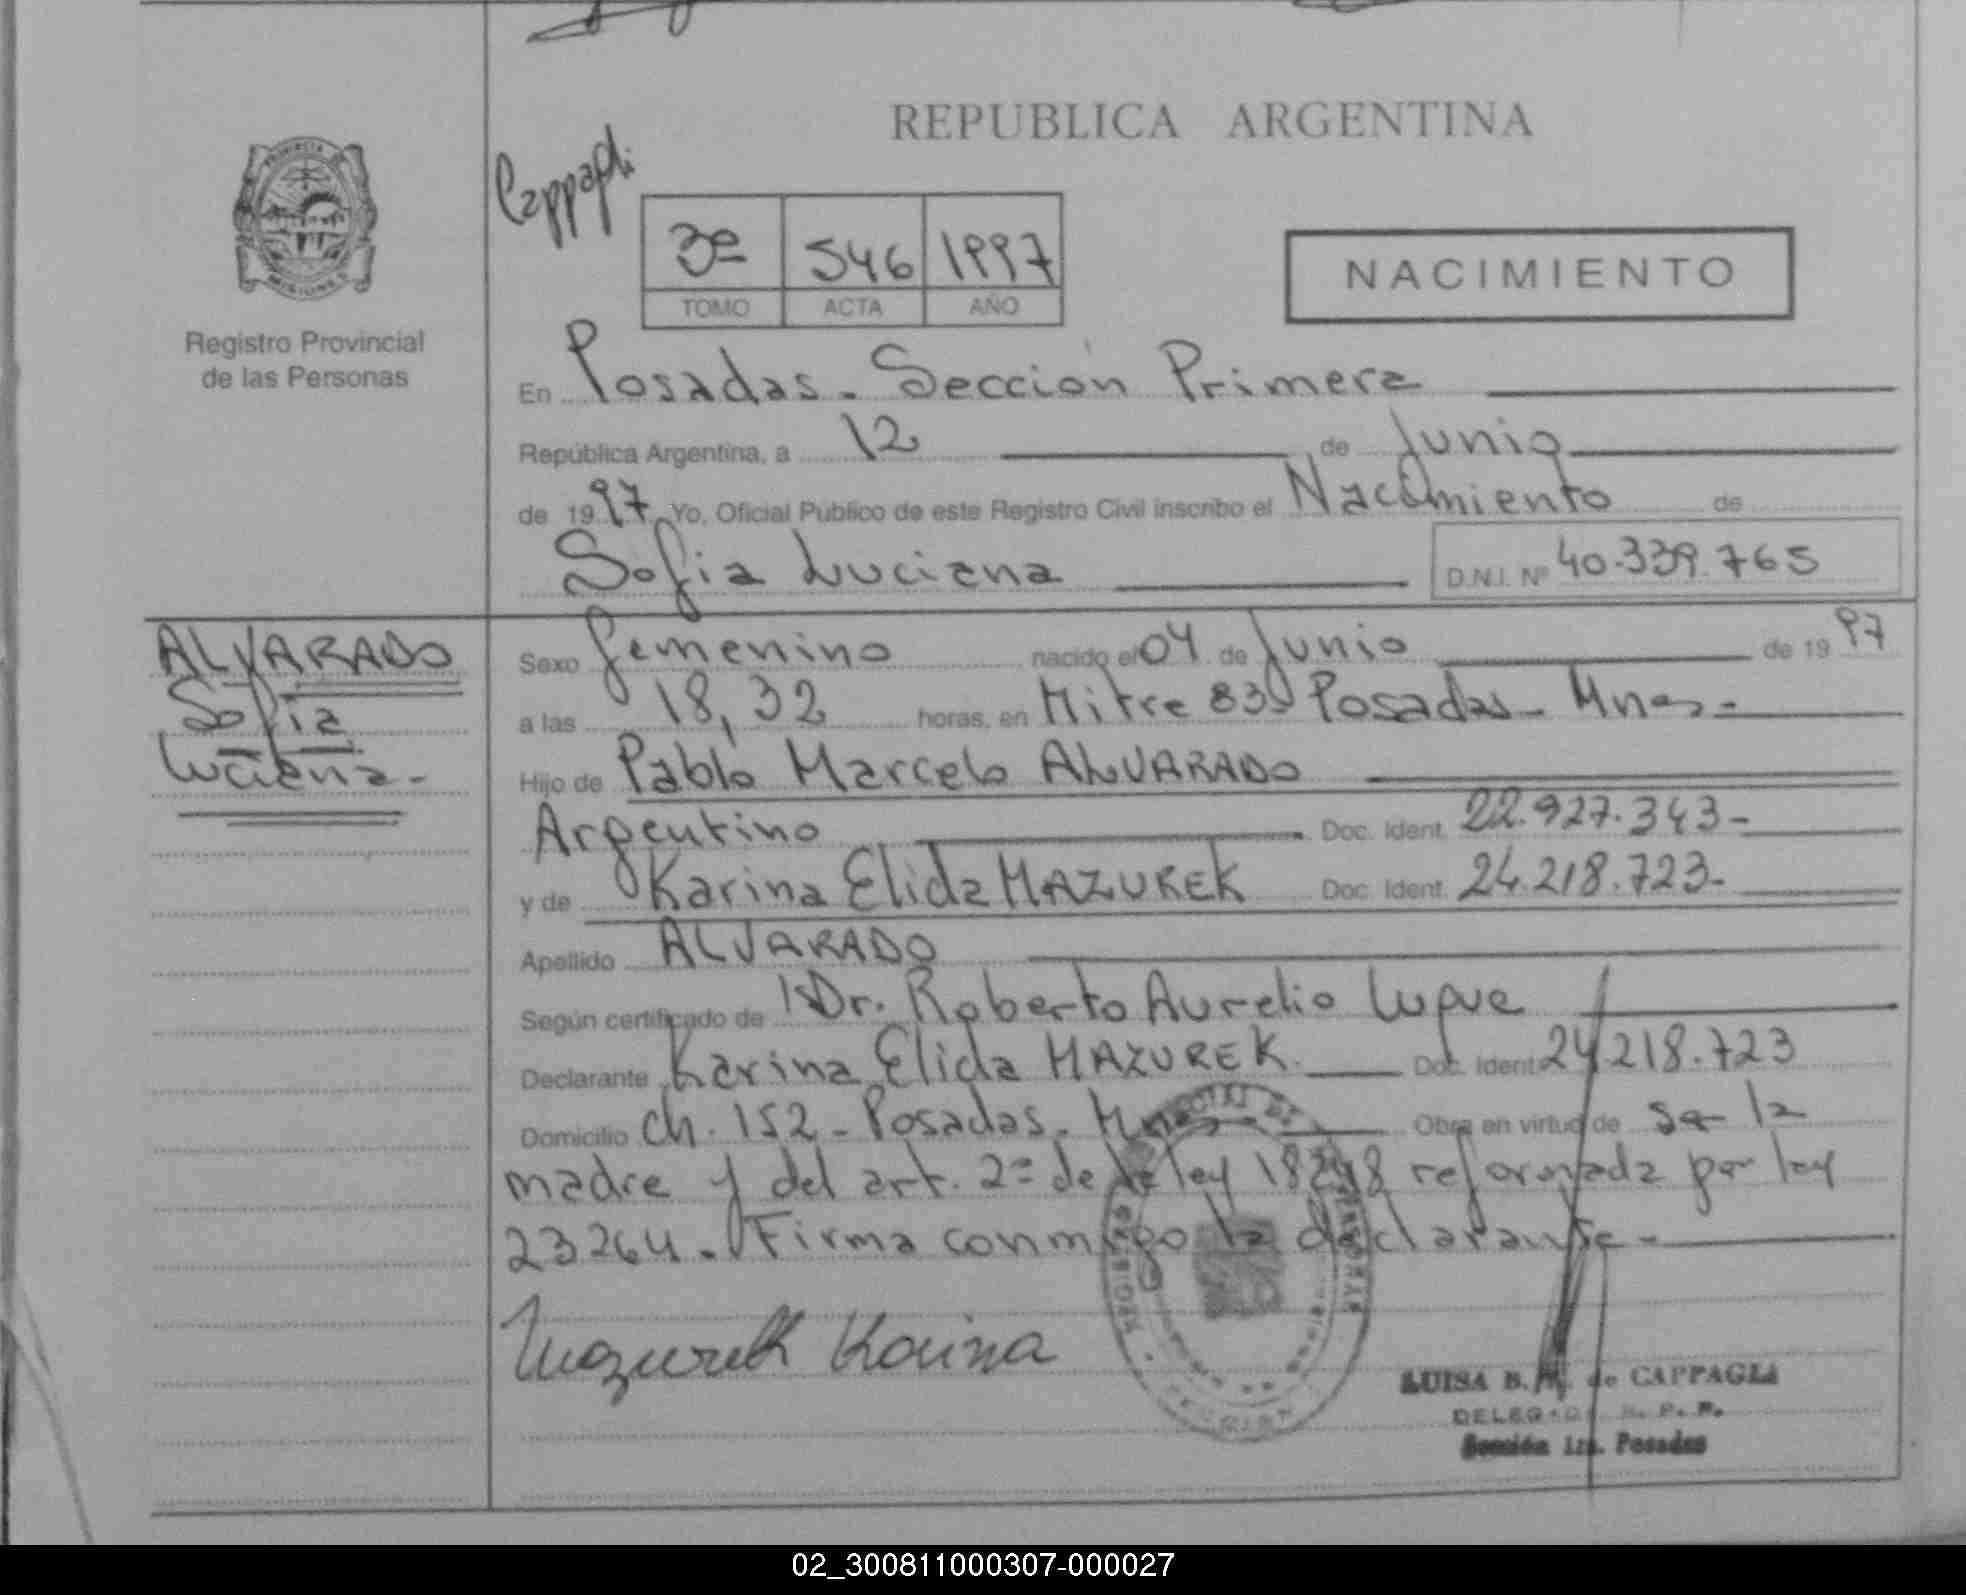 REPUBLICA ARGENTINA
PROVINCIA DE
MISIONES
Registro Provincial
de las Personas
3º 546 1997
TOMO ACTA AÑO
NACIMIENTO
En Posadas - Sección Primera
República Argentina, a 12 de Junio
de 1997 Yo, Oficial Público de este Registro Civil inscribo el Nacimiento de
Sofia Luciana D.N.I. Nº 40.339.765
ALVARADO
Sofia
Luciana -
Sexo femenino nacido el 04 de Junio de 1997
a las 18,32 horas, en Mitre 839 Posadas - Mnes -
Hijo de Pablo Marcelo ALVARADO
Argentino Doc. Ident. 22.927.343 -
y de Karina Elida MAZUREK Doc. Ident. 24.218.723 -
Apellido ALVARADO
Según certificado de Dr. Roberto Aurelio Luque
Declarante Karina Elida MAZUREK. Doc. Ident. 24.218.723
Domicilio Ch. 152 - Posadas - Mnes Obra en virtud de ser la
madre y del art. 2º de la ley 18248 reformada por ley
23264. Firma conmigo la declarante -
Mazurek Karina
LUISA B. M. de CAPPAGLI
DELEGADA R. P. P.
Sección 1ra. Posadas
02_300811000307-000027